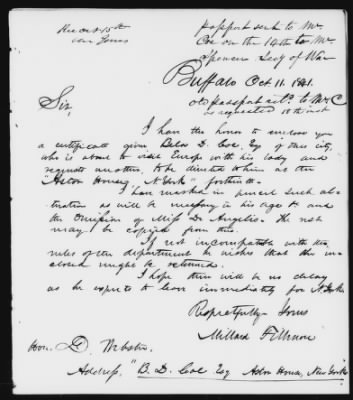 Rec Oct 15th
passport sent to Mr.
Coe on the 14th to Mr.
Spencer Secy of War
Buffalo Oct 11. 1841.
old passport retd. to Mr C
as requested 18th inst
Sir,
I have the honor to enclose you
a certificate given Belos D. Coe, Esq of this city,
who is about to visit Europe with his lady and
requests another, to be directed to him at the
"Astor House, N. York" forthwith.
I have marked in pencil such al-
terations as will be necessary in his age &c and
the omission of Miss De Angelis. The rest
may be copied from this.
If not incompatible with the
rules of the department he wishes that this in-
closed might be returned.
I hope there will be no delay
as he expects to leave immediately for N. York
Respectfully Yours
Millard Fillmore
Hon. D. Webster.
Address, "B. D. Coe Esq Astor House, New York"